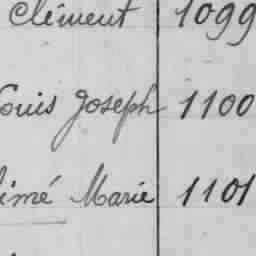 Clément 1099
Louis Joseph 1100
Aimé Marie 1101